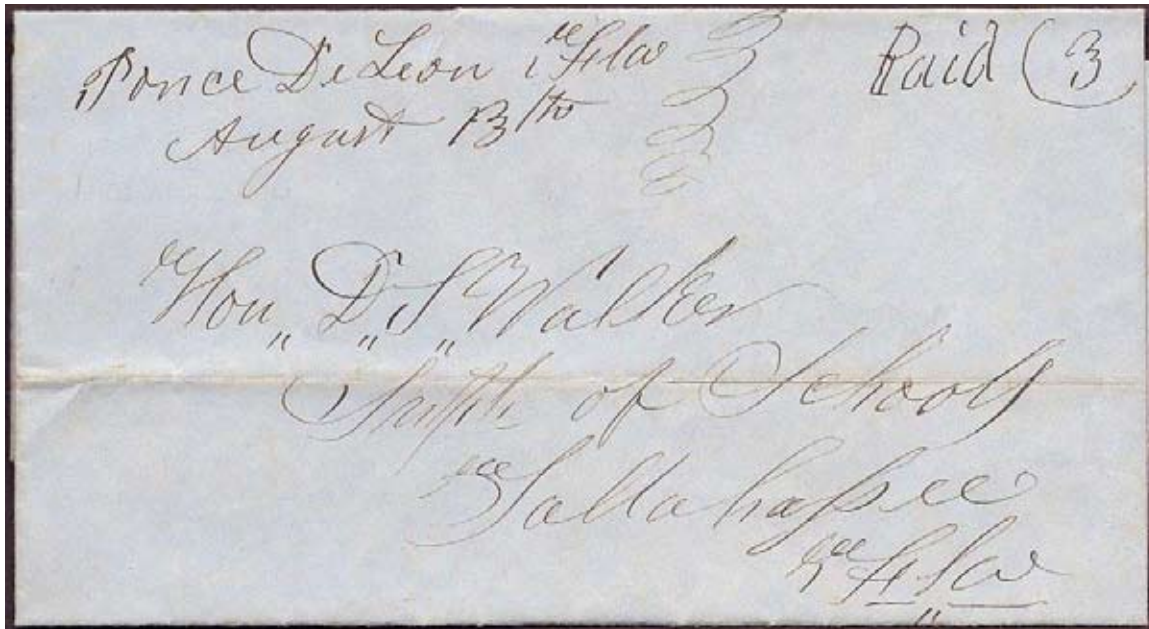 Ponce De Leon Fla
Paid 3
August 13th
Hon D S Walker
Supt of Schools
Tallahassee
Fla